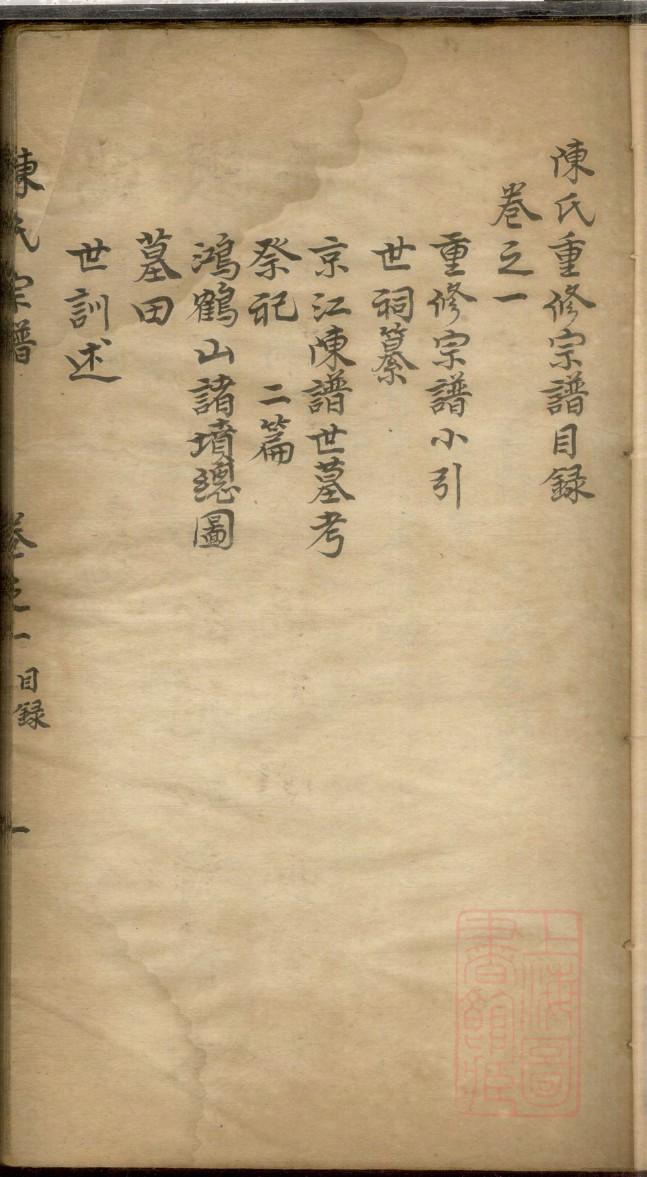 陳氏重修宗譜目録
卷之一
重修宗譜小引
世祠纂
京江陳譜世墓考
祭祀 二篇
鴻鶴山諸墳總圖
墓田
世訓述
陳氏宗譜 卷之一 目録 一
上海圖書館藏